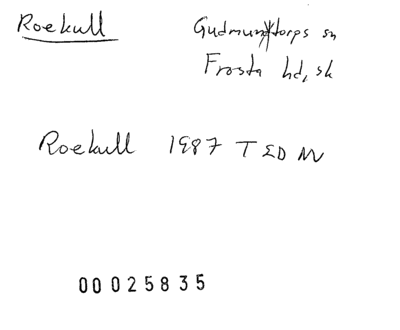 Roekull
Gudmuntorps sn
Frosta hd, sk
Roekull 1987 T ED
00025835